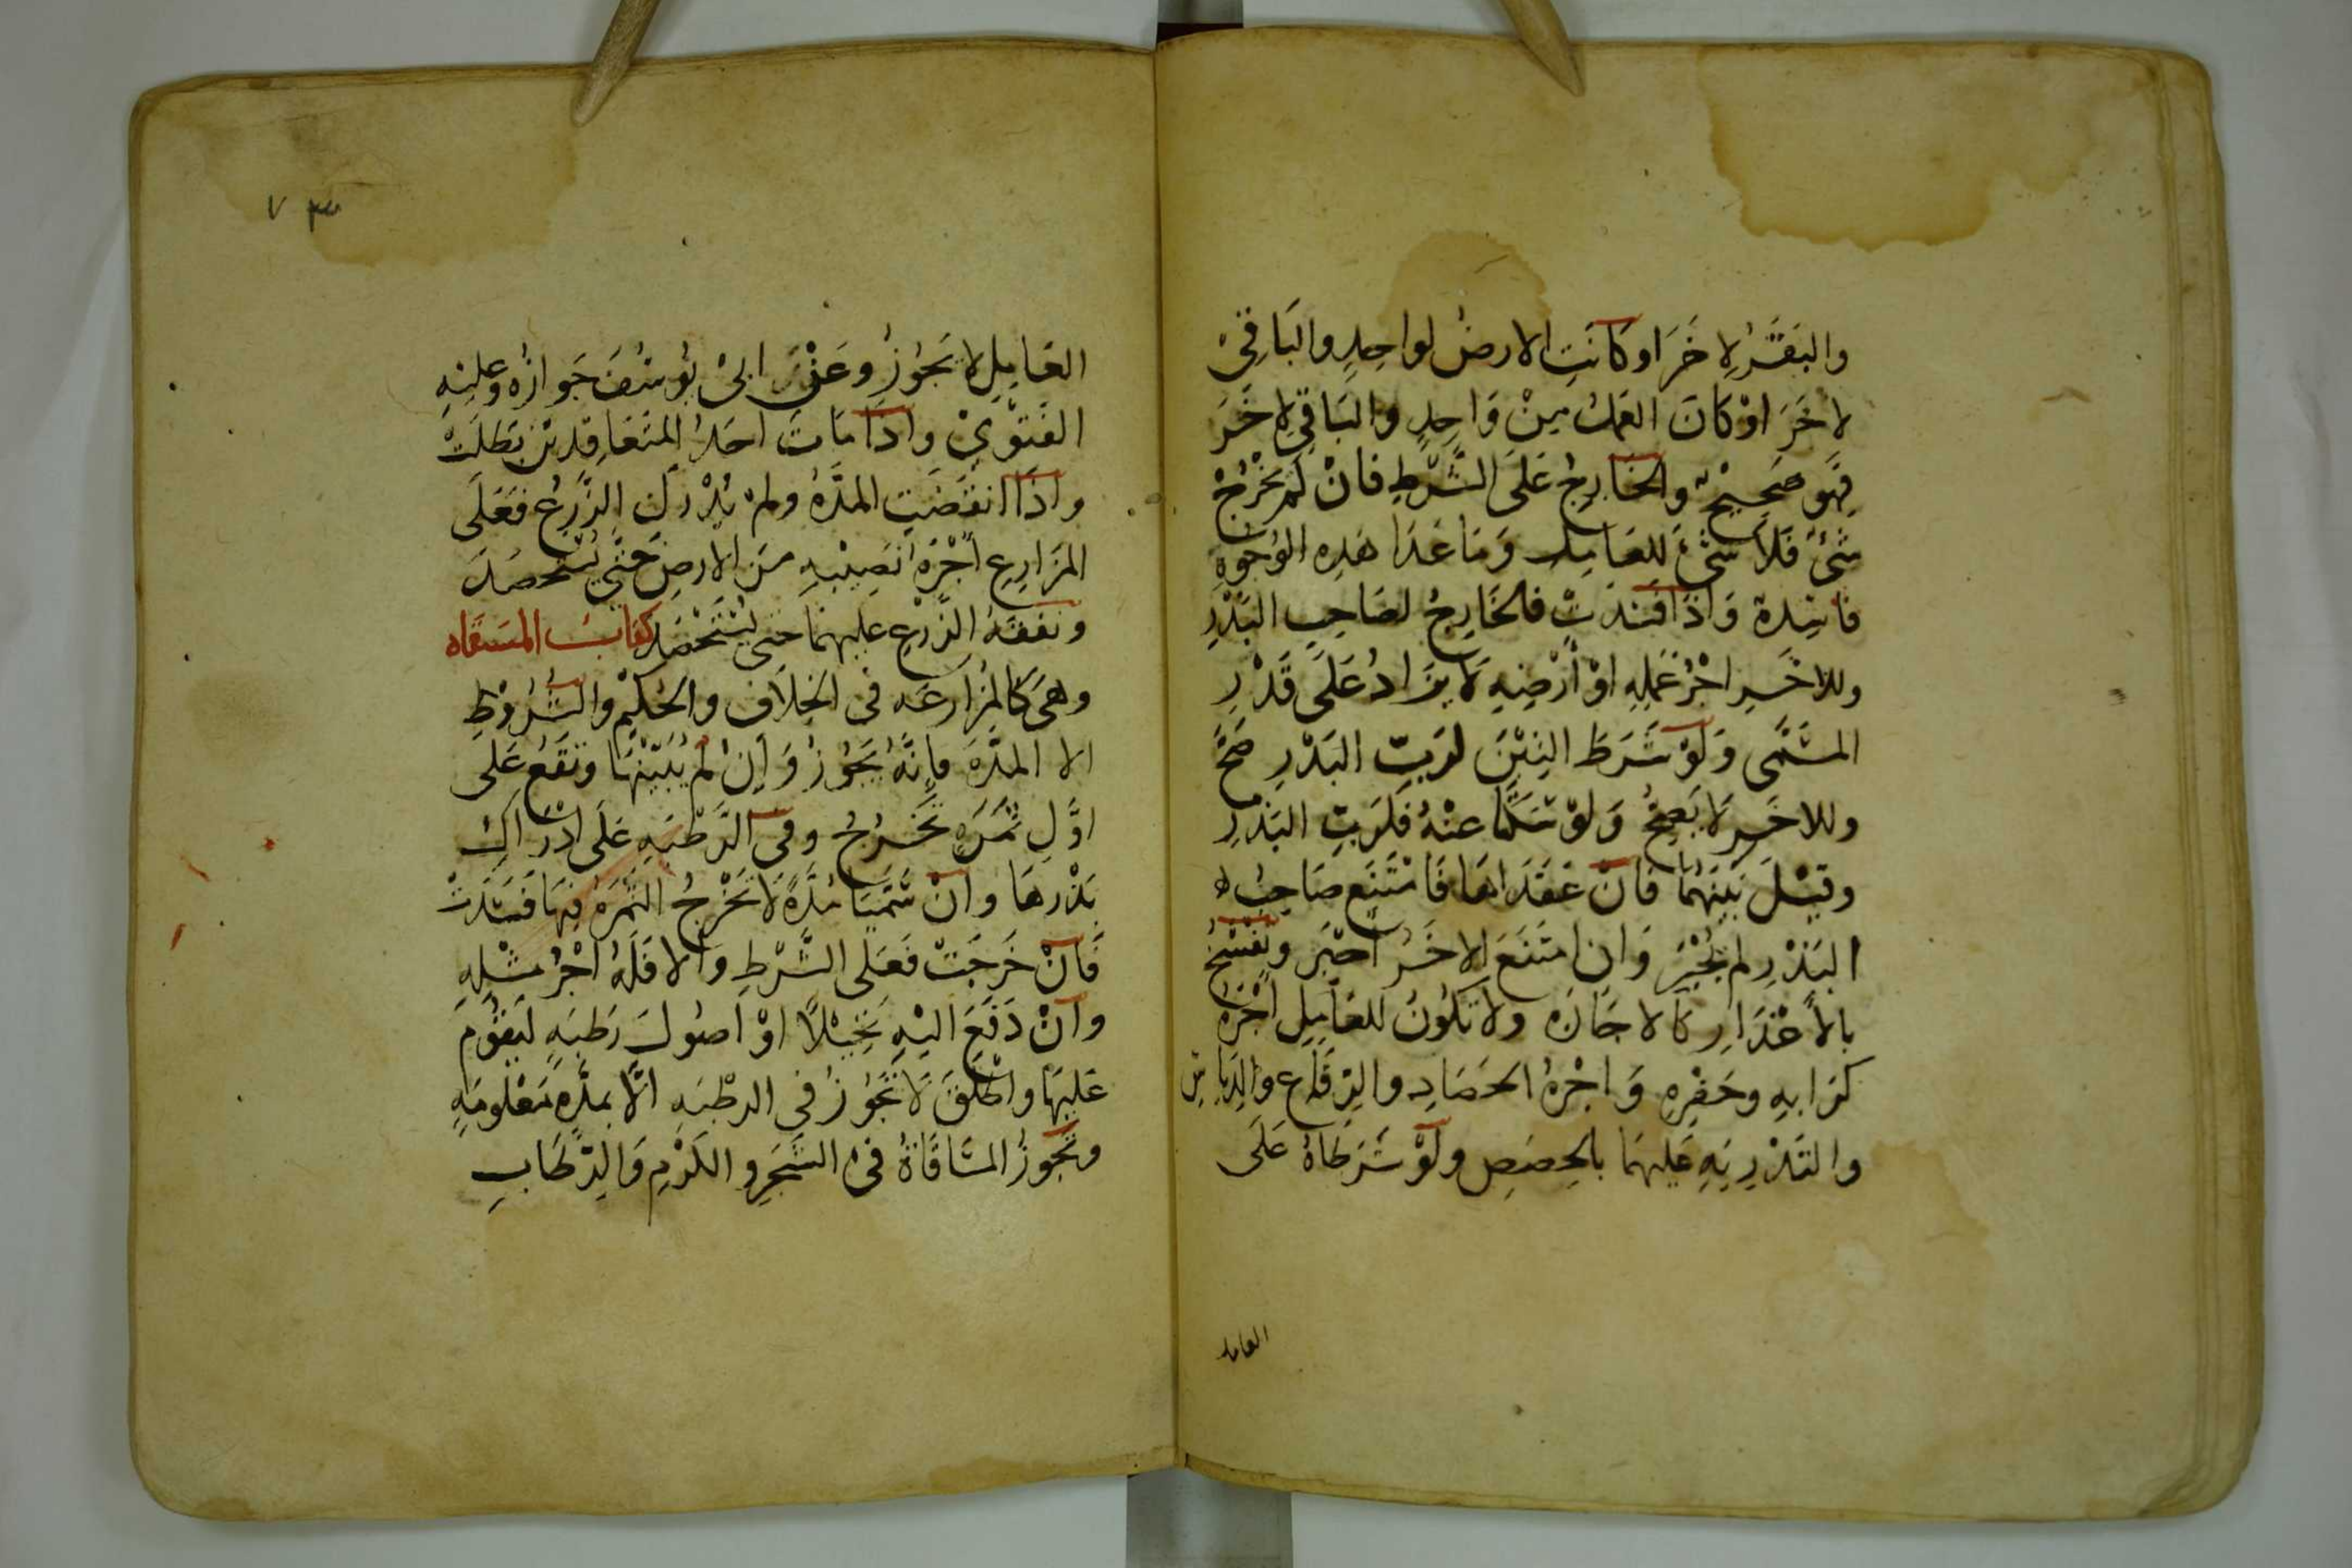 والبَقَرُ لِاخَرَ اوكَانَتِ الارضُ لواحِدٍ والبَاقِيْ
لاخَرَ اوْكَانَ العَمَلُ مِنْ وَاحِدٍ والبَاقِي لِاخَرَ
فَهِوَ صَحِيْحٌ والخَارِجُ عَلَى الشَّرْطِ فَانْ لَمْ يَخْرُجْ
شَئٌ فَلا شَئَ للعَامِلِ وَمَا عَدَا هَذِهِ الوُجُوهِ
فَاسِدةٌ وَاذَا فَسَدَتْ فَالخَارِجُ لصَاحِبِ البَذْرِ
وللاخَرِ اجْرُ عَمَلِهِ اوْ أَرْضِهِ لَا يُزَادُ عَلَى قَدْرِ
المسَمَّى وَلَوْ شَرَطَ التِبْنَ لرَبِّ البَذْرِ صَحَّ
وللاخَرِ لَا يَصِحُّ وَلَوْ سَكَتَا عنْهُ فَلرَبِّ البَذْرِ
وقِيْلَ بَيْنَهُمَا فَانْ عَقَدَاهَا فَامْتَنَعَ صَاحِبُ
البَذْرِ لم يُجْبَرْ وَانِ امتَنَعَ الاخَرُ اُجْبِرَ وتُفْسَخُ
بالأَعْذَارِ كَالاجَارَه ولا تَكُونُ للعَامِلِ اُجْرَةُ
كِرَابهِ وحَفْرِهِ وَاجْرَةُ الحَصَادِ والرِّفَاعِ والدِّيَاسِ
والتَذْرِيَهِ عَليهِمَا بالحِصَصِ ولَوْ شَرَطَاهُ عَلَى
العامل
٧٣
العَامِلِ لا يَجُوْزُ وعَنْ ابىْ يُوسُفَ جَوازُه وعليْهِ
الفَتْوْىْ واذَا مَاتَ احَدُ المتَعَاقِدَيْنِ بَطلَتْ
واذَا انقَضَتِ المدَّةُ ولمْ يُدْرَك الزَّرعُ فَعَلَى
المزَارِعِ أجْرَةُ نَصِيْبِهِ مِنَ الارضِ حَتَّى يُسْتَحصَدَ
ونفَقَةُ الزَّرْعِ عليهِمَا حَتى يُسْتَحْصَد كتَابُ المسَقَاه
وهىَ كَالمزَارعَه فى الخِلَافِ والحُكْمِ والشُّرُوْطِ
الا المدَّةَ فَإنَّهُ يَجُوْزُ وَإنْ لم يُبَيّنْهَا وتَقَعُ عَلى
اوَّلِ ثمرَهٍ تَخْرُجُ وفى الرَّطْبَهِ عَلَى ادْرَاكِ
بَذْرِهَا وانْ سَّمَيَا مُدَّةً لا تَخْرُجُ الثَمَرَةُ فِيْهَا فَسَدَتْ
فَانْ خَرَجَتْ فَعَلى الشَّرْطِ والا فَلَهُ اجْرُ مثْلِهِ
وانْ دَفَعَ اليْهِ نَخِيْلًا اوْ اصُولَ رَطبَهٍ لَيقُومَ
عَليهَا واطْلَقَ لَا تَجُوْزُ فى الرطْبَهِ الَّا بمدَّهٍ مَعْلومَهٍ
وتَجُوزُ المسَاقَاةُ فِىْ الشَّجَرِ والكَرْمِ وَالرِّطَابِ